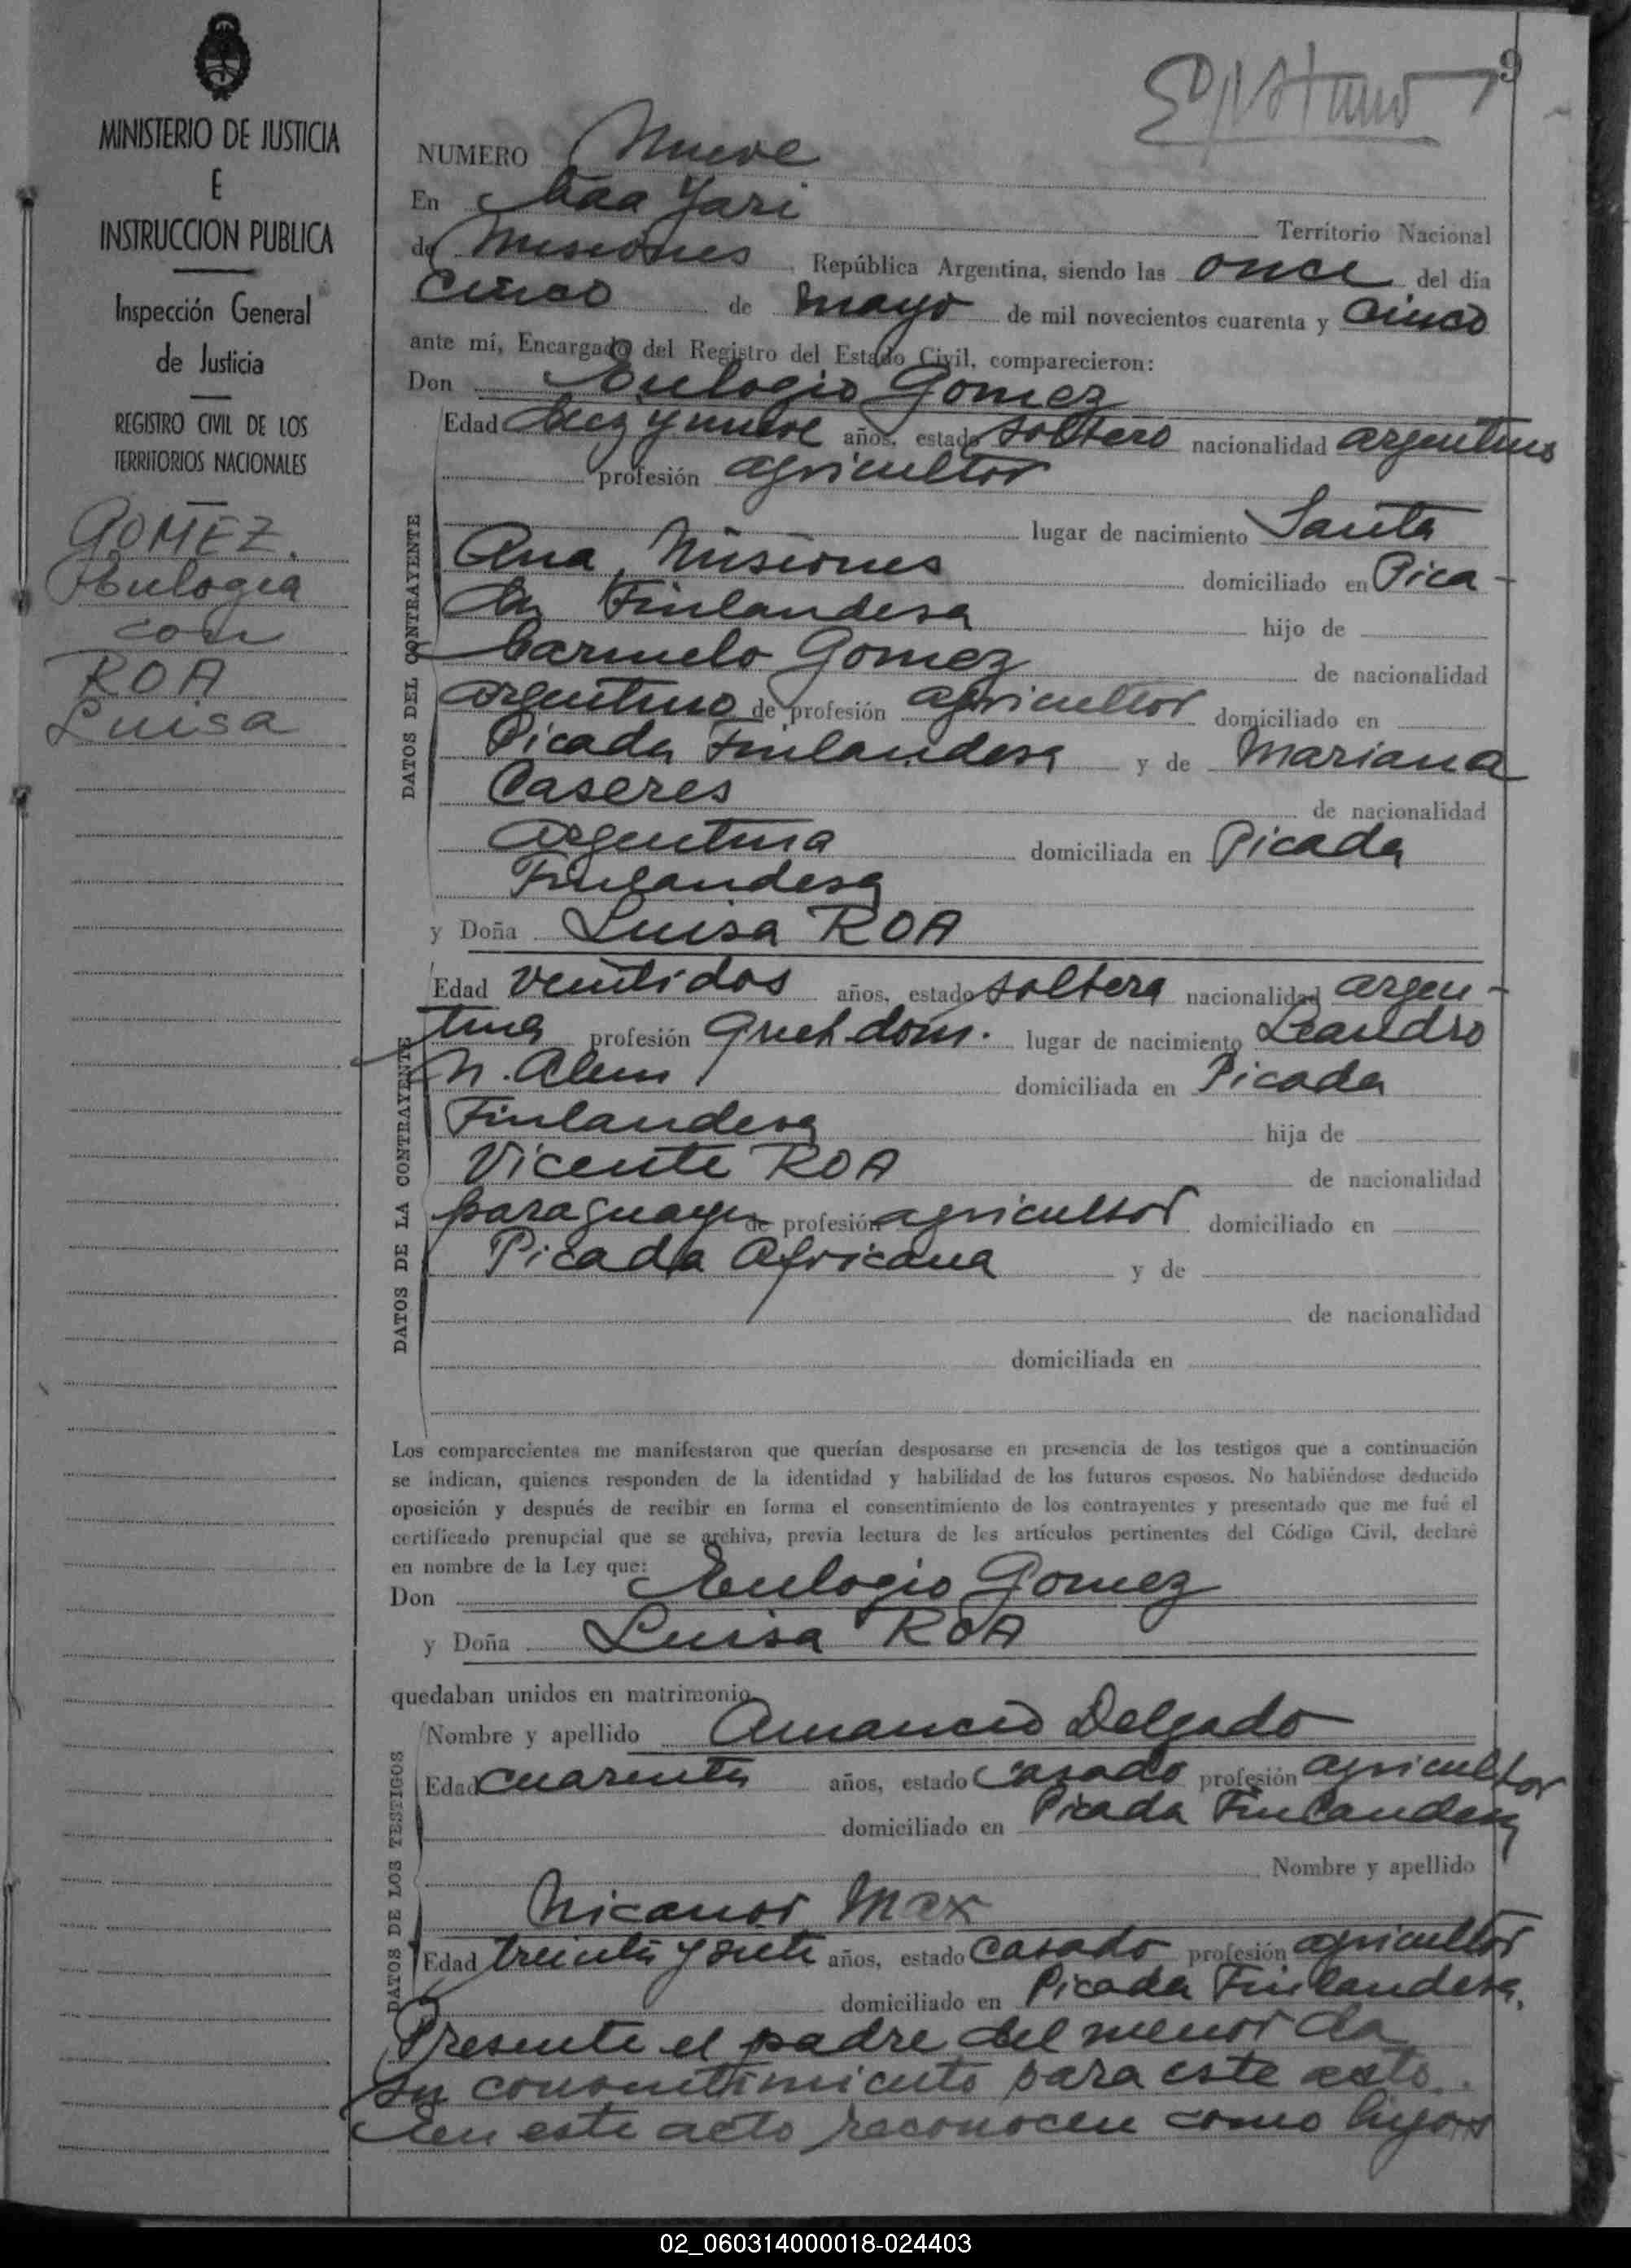 9
MINISTERIO DE JUSTICIA
E
INSTRUCCION PUBLICA
Inspección General
de Justicia
REGISTRO CIVIL DE LOS
TERRITORIOS NACIONALES
GOMEZ.
Eulogia
con
ROA
Luisa
NUMERO Nueve
En Caa Yari
Territorio Nacional
de Misiones, República Argentina, siendo las once del día
Cinco de Mayo de mil novecientos cuarenta y Cinco
ante mí, Encargado del Registro del Estado Civil, comparecieron:
Don Eulogio Gomez
Edad diez y nueve años, estado soltero nacionalidad argentino
profesión agricultor
lugar de nacimiento Santa
Ana, Misiones domiciliado en Pica-
da Finlandesa hijo de
Carmelo Gomez de nacionalidad
argentino de profesión agricultor domiciliado en
Picada Finlandesa y de Mariana
Caseres de nacionalidad
argentina domiciliada en Picada
Finlandesa
DATOS DEL CONTRAYENTE
y Doña Luisa ROA
Edad ventidos años, estado soltera nacionalidad argen-
tina profesión queh. dom. lugar de nacimiento Leandro
N. Alem domiciliada en Picada
Finlandesa hija de
Vicente ROA de nacionalidad
paraguayo de profesión agricultor domiciliado en
Picada Africana y de
de nacionalidad
domiciliada en
DATOS DE LA CONTRAYENTE
Los comparecientes me manifestaron que querían desposarse en presencia de los testigos que a continuación
se indican, quienes responden de la identidad y habilidad de los futuros esposos. No habiéndose deducido
oposición y después de recibir en forma el consentimiento de los contrayentes y presentado que me fué el
certificado prenupcial que se archiva, previa lectura de los artículos pertinentes del Código Civil, declaré
en nombre de la Ley que:
Don Eulogio Gomez
y Doña Luisa ROA
quedaban unidos en matrimonio
Nombre y apellido Amancio Delgado
Edad cuarenta años, estado Casado profesión agricultor
domiciliado en Picada Finlandesa
Nombre y apellido
Nicanor Max
Edad treinta y siete años, estado Casado profesión agricultor
domiciliado en Picada Finlandesa.
DATOS DE LOS TESTIGOS
Presente el padre del menor da
su consentimiento para este acto.
En este acto reconocen como hijos
02_060314000018-024403